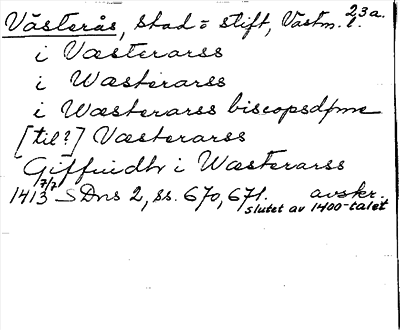 Västerås, stad o stift, Västm. l. 23a.
i Væsterarss
i Wæsterarss
i Wæsterarss biscopsdøme
[til?] Væsterarss
Giffuidh i Wæsterarss
1413 7/7 SDns 2, ss. 670, 671. avskr.
slutet av 1400-talet